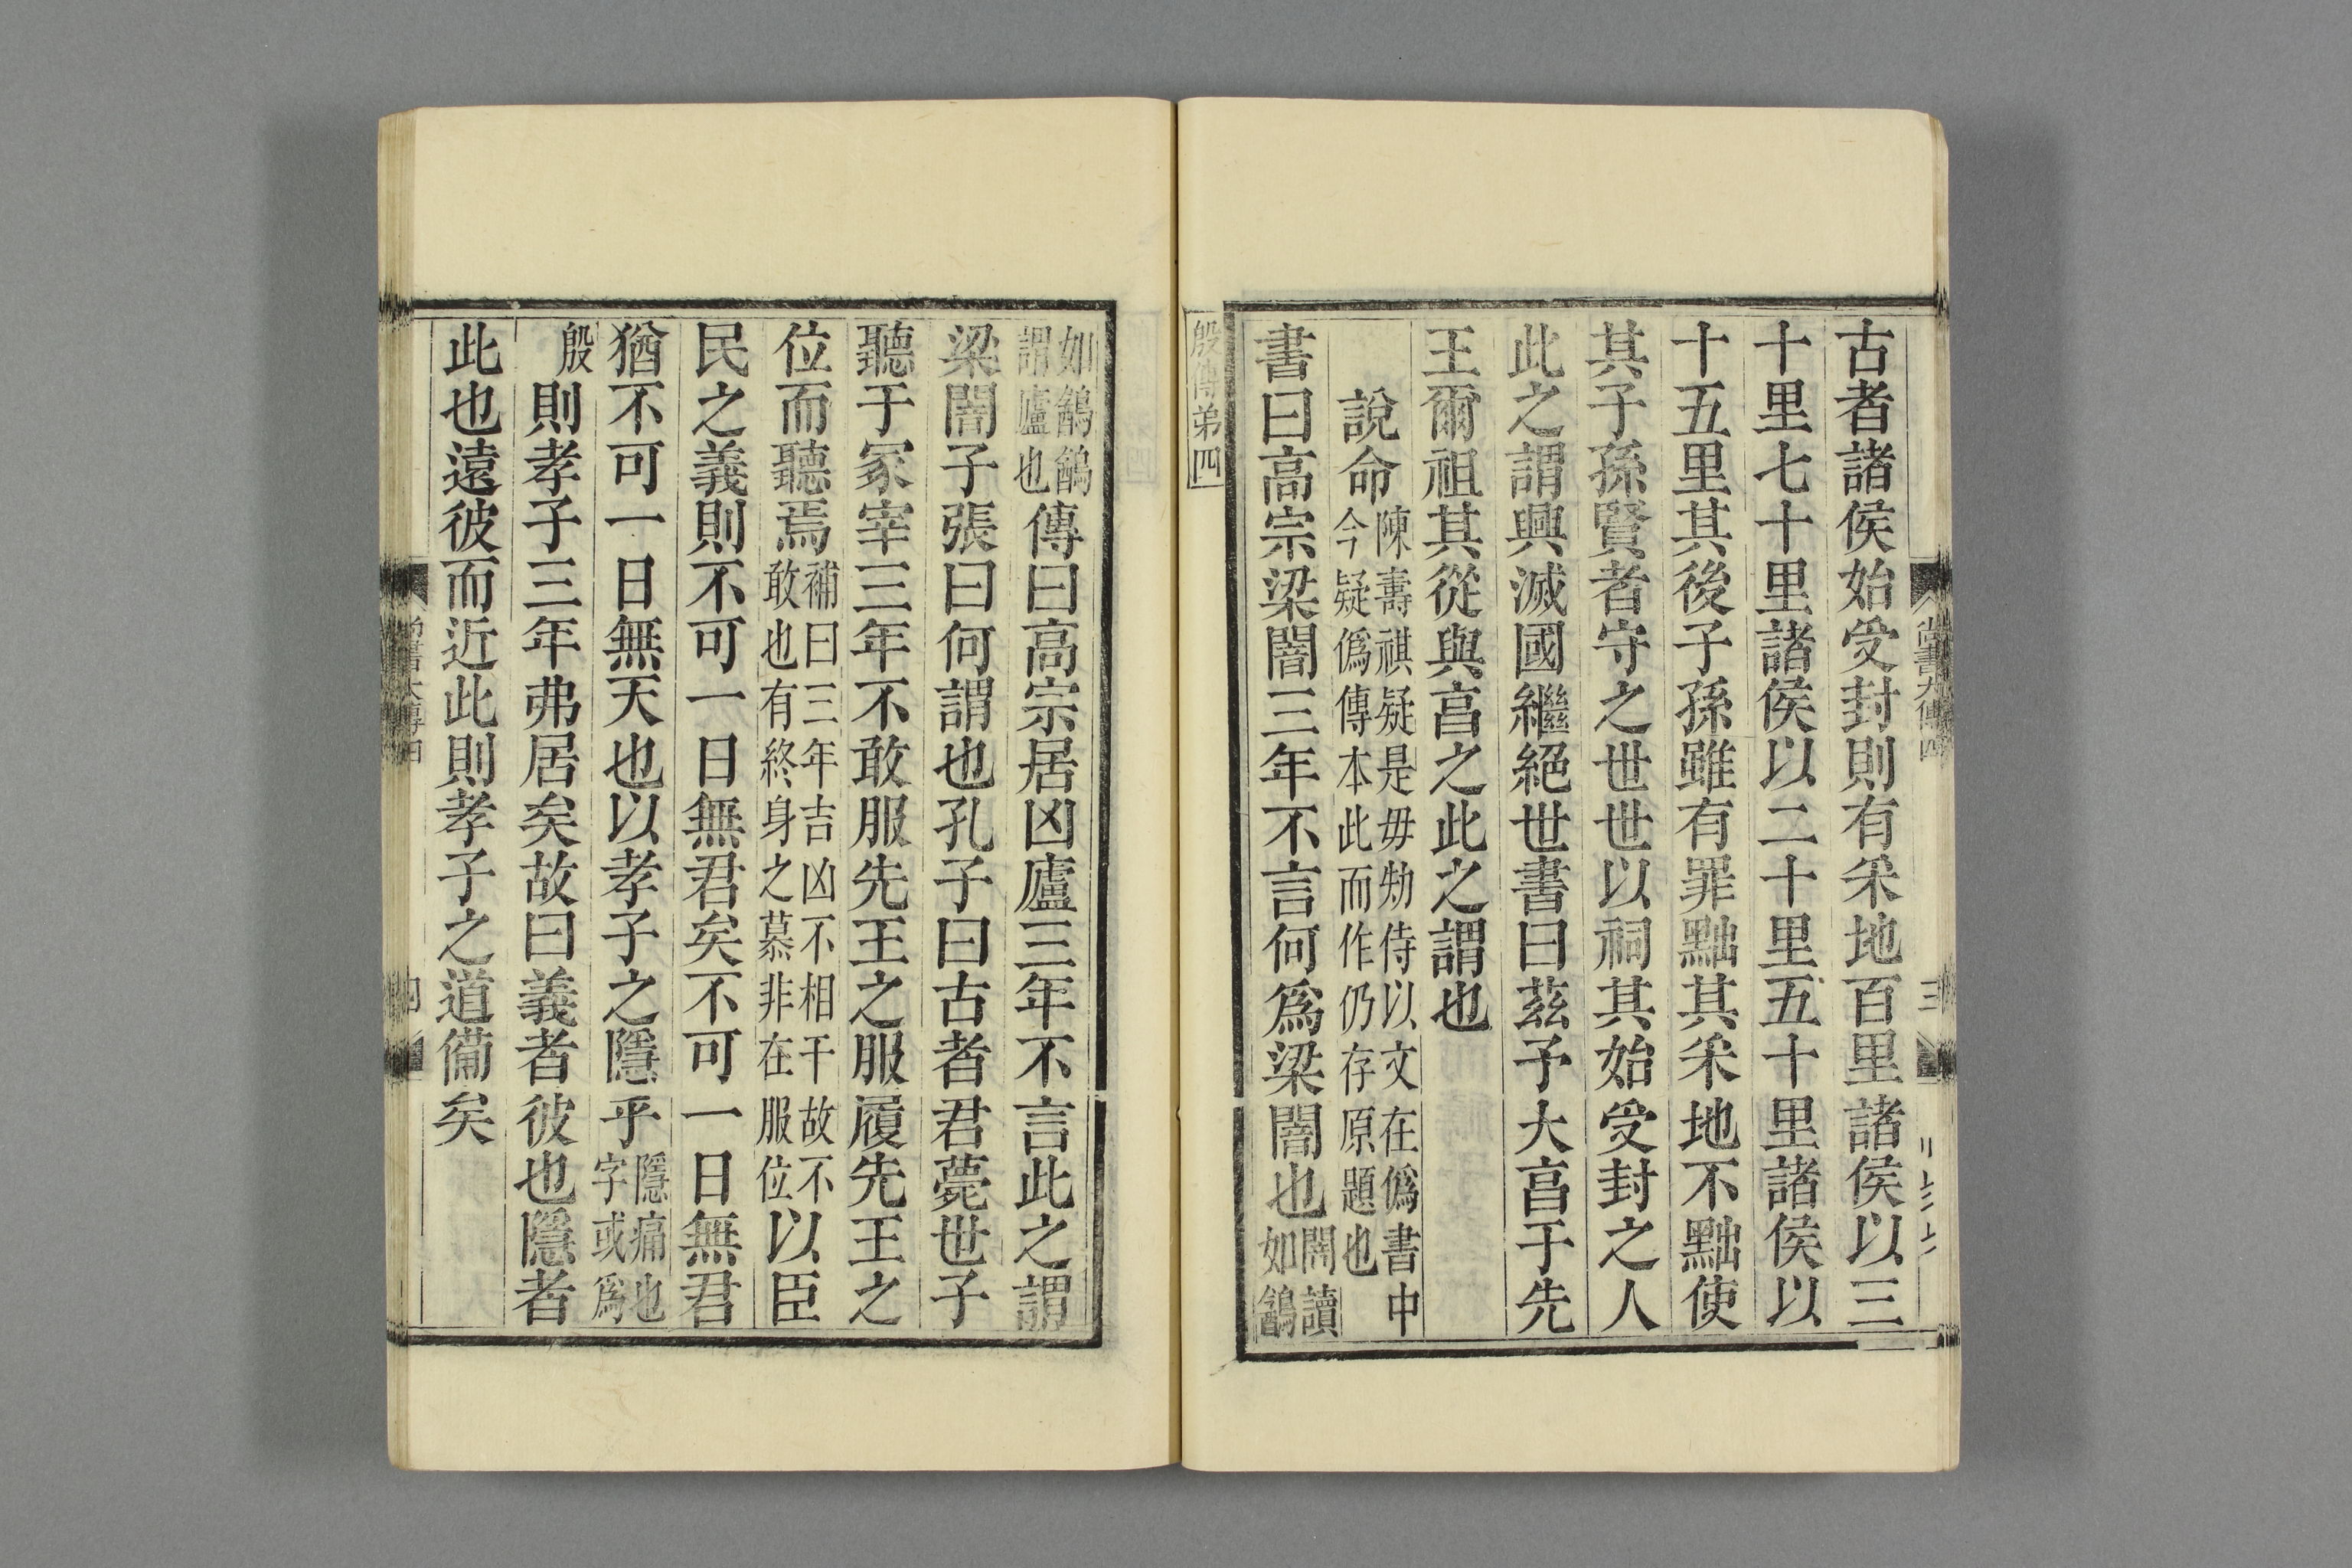 古者諸侯始受封則有采地百里諸侯以三
十里七十里諸侯以二十里五十里諸侯以
十五里其後子孫雖有罪黜其采地不黜使
其子孫賢者守之世世以祠其始受封之人
此之謂興滅國繼絕世書曰茲予大亯于先
王爾祖其從與亯之此之謂也
說命
陳壽祺疑是毋勑侍以文在僞書中
今疑僞傳本此而作仍存原題也
書曰高宗梁闇三年不言何爲梁闇也
闇讀
如鶕
殷傳弟四
如鶕鶕
謂廬也
傳曰高宗居凶廬三年不言此之謂
梁闇子張曰何謂也孔子曰古者君薨世子
聽于冢宰三年不敢服先王之服履先王之
位而聽焉
補曰三年吉凶不相干故不
敢也有終身之慕非在服位
以臣
民之義則不可一日無君矣不可一日無君
猶不可一日無天也以孝子之隱乎
隱痛也
字或爲
殷
則孝子三年弗居矣故曰義者彼也隱者
此也遠彼而近此則孝子之道備矣
尚書大傳四
四